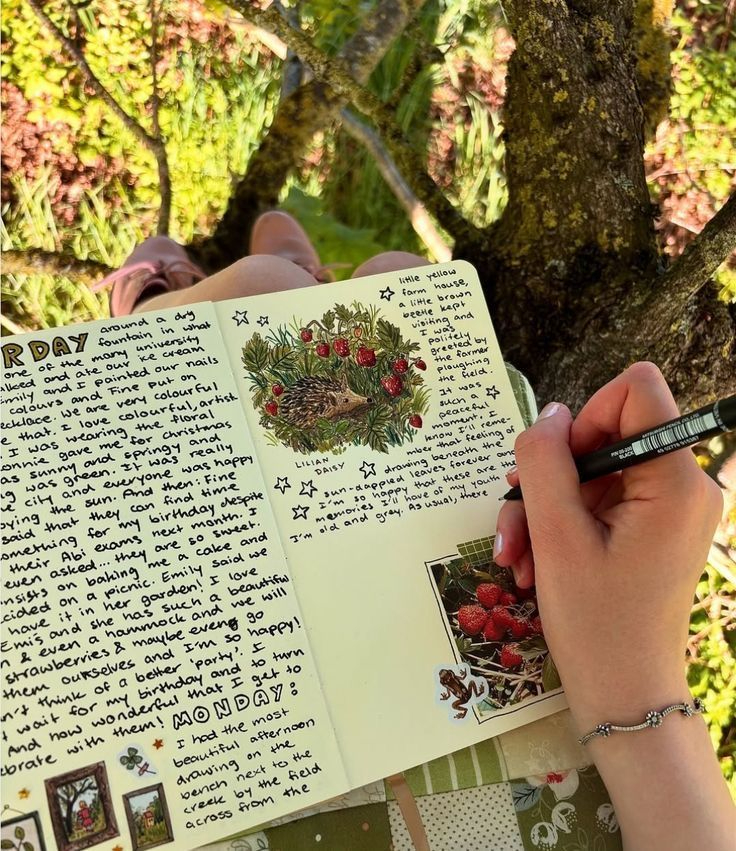 RDAY around a dry
fountain in what
one of the many university
lked and ate our ice cream
Emily and I painted our nails
colours and Fine put on
cklace. We are very colourful
e that. I love colourful, artist
I was wearing the floral
onnie gave me for christmas
as sunny and springy and
ng was green. It was really
e city and everyone was happy
oying the sun. And then: Fine
said that they can find time
omething for my birthday despite
their Abi exams next month. I
even asked... they are so sweet.
nsists on baking me a cake and
cided on a picnic. Emily said we
have it in her garden! I love
Emi's and she has such a beautiful
n & even a hammock and we will
strawberries & maybe even go
them ourselves and I'm so happy!
n't think of a better 'party'. I
t wait for my birthday and to turn
And how wonderful that I get to
ebrate with them!
MONDAY:
I had the most
beautiful afternoon
drawing on the
bench next to the
creek by the field
across from the
little yellow
farm house,
a little brown
beetle kept
visiting and
I was
politely
greeted by
the farmer
ploughing
the field.
It was
such a
peaceful
moment, I
know I'll reme-
mber that feeling of
drawing beneath the
sun-dappled leaves forever and
I'm so happy that these are the
memories I'll have of my youth
I'm old and grey. As usual, there
LILIAN
DAISY
BLACK